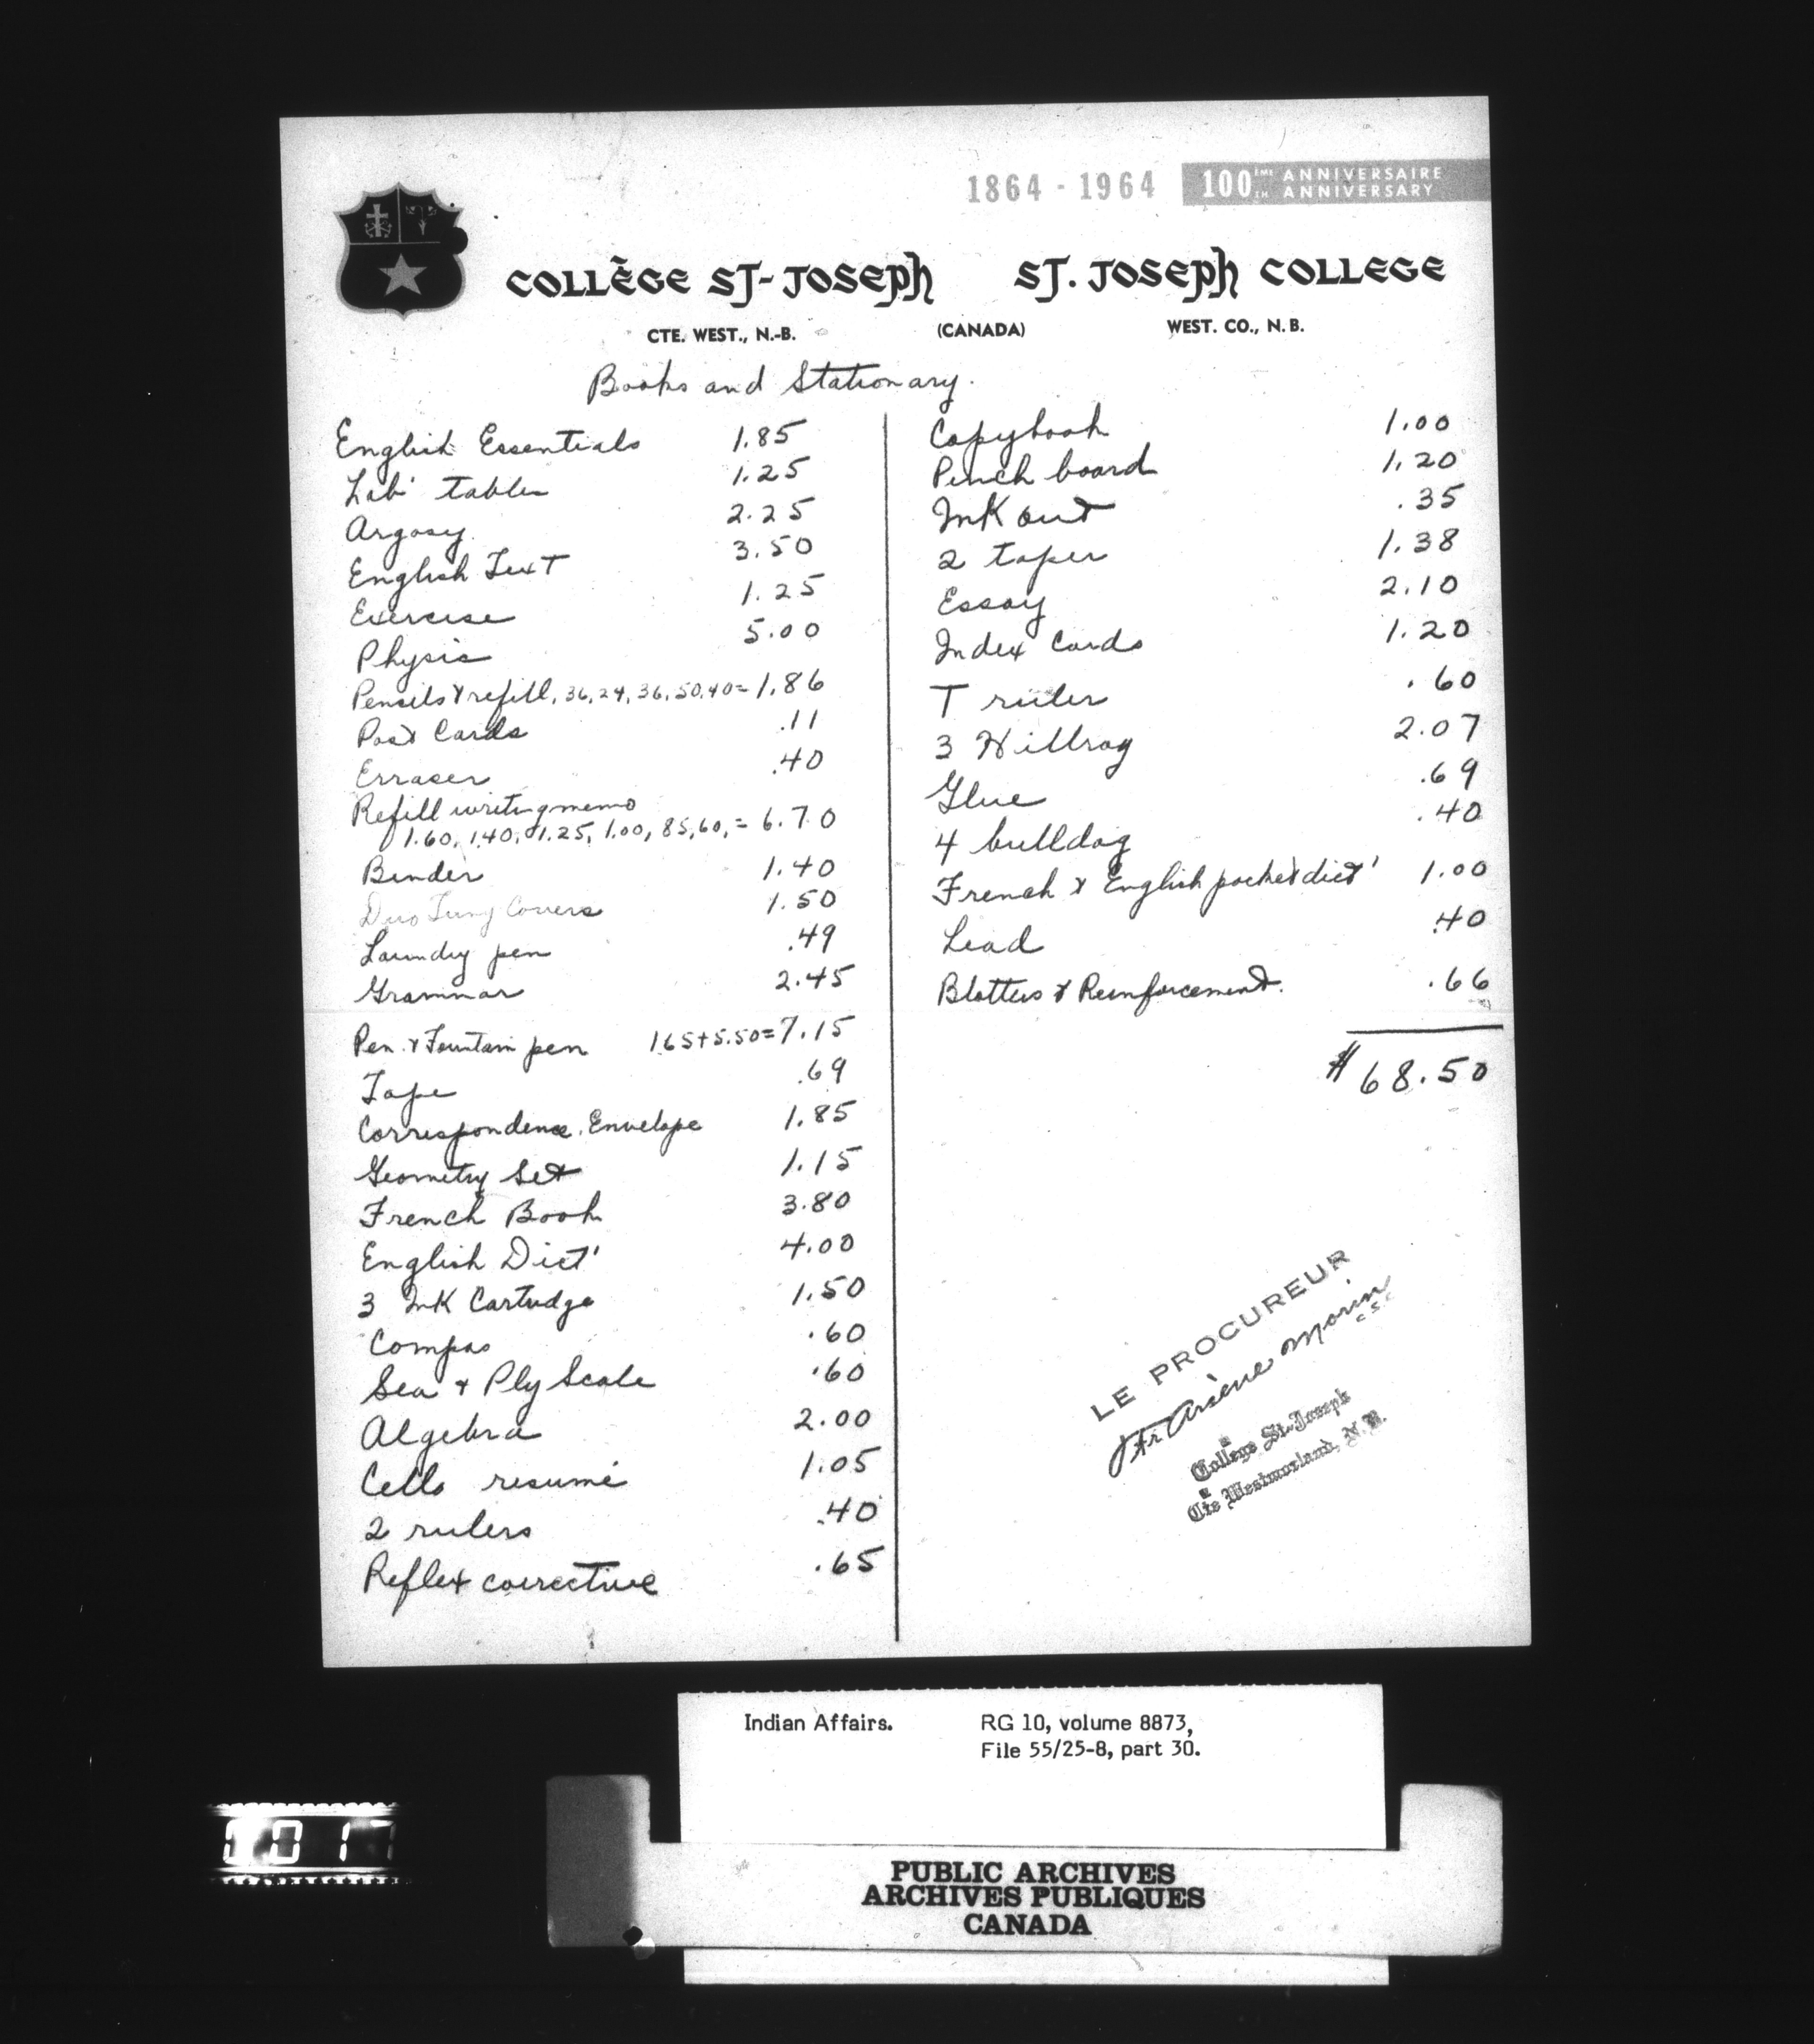 1864 - 1964 100 IME TH ANNIVERSAIRE ANNIVERSARY
COLLÈGE ST-JOSEPH ST. JOSEPH COLLEGE
CTE. WEST., N.-B. (CANADA) WEST. CO., N. B.
Books and Stationary.
English Essentials 1.85
Lab' table 1.25
Argosy 2.25
English Text 3.50
Exercise 1.25
Physis 5.00
Pencils & refill, 36, 24, 36, 50, 40 = 1.86
Post Cards .11
Erraser .40
Refill writing memo
1.60, 1.40, 1.25, 1.00, 85, 60, = 6.70
Binder 1.40
Duo Tung Covers 1.50
Laundry pen .49
Grammar 2.45
Pen & Fountain pen 1.65 + 5.50 = 7.15
Tape .69
Correspondence. Envelope 1.85
Geometry Set 1.15
French Book 3.80
English Dict' 4.00
3 Ink Cartudge 1.50
Compas .60
Sea & Ply Scale .60
Algebra 2.00
Cello resumé 1.05
2 rulers .40
Reflex corrective .65
Copybook 1.00
Punch board 1.20
Ink out .35
2 taper 1.38
Essay 2.10
Index Cards 1.20
T ruler .60
3 Hillroy 2.07
Glue .69
4 bulldog .40
French & English pocket dict' 1.00
Lead .40
Blotters & Reinforcement. .66
$ 68.50
LE PROCUREUR
Fr Arsène Morin c.s.c.
College St-Joseph
Cte Westmorland, N. B.
Indian Affairs. RG 10, volume 8873,
File 55/25-8, part 30.
0017
PUBLIC ARCHIVES
ARCHIVES PUBLIQUES
CANADA